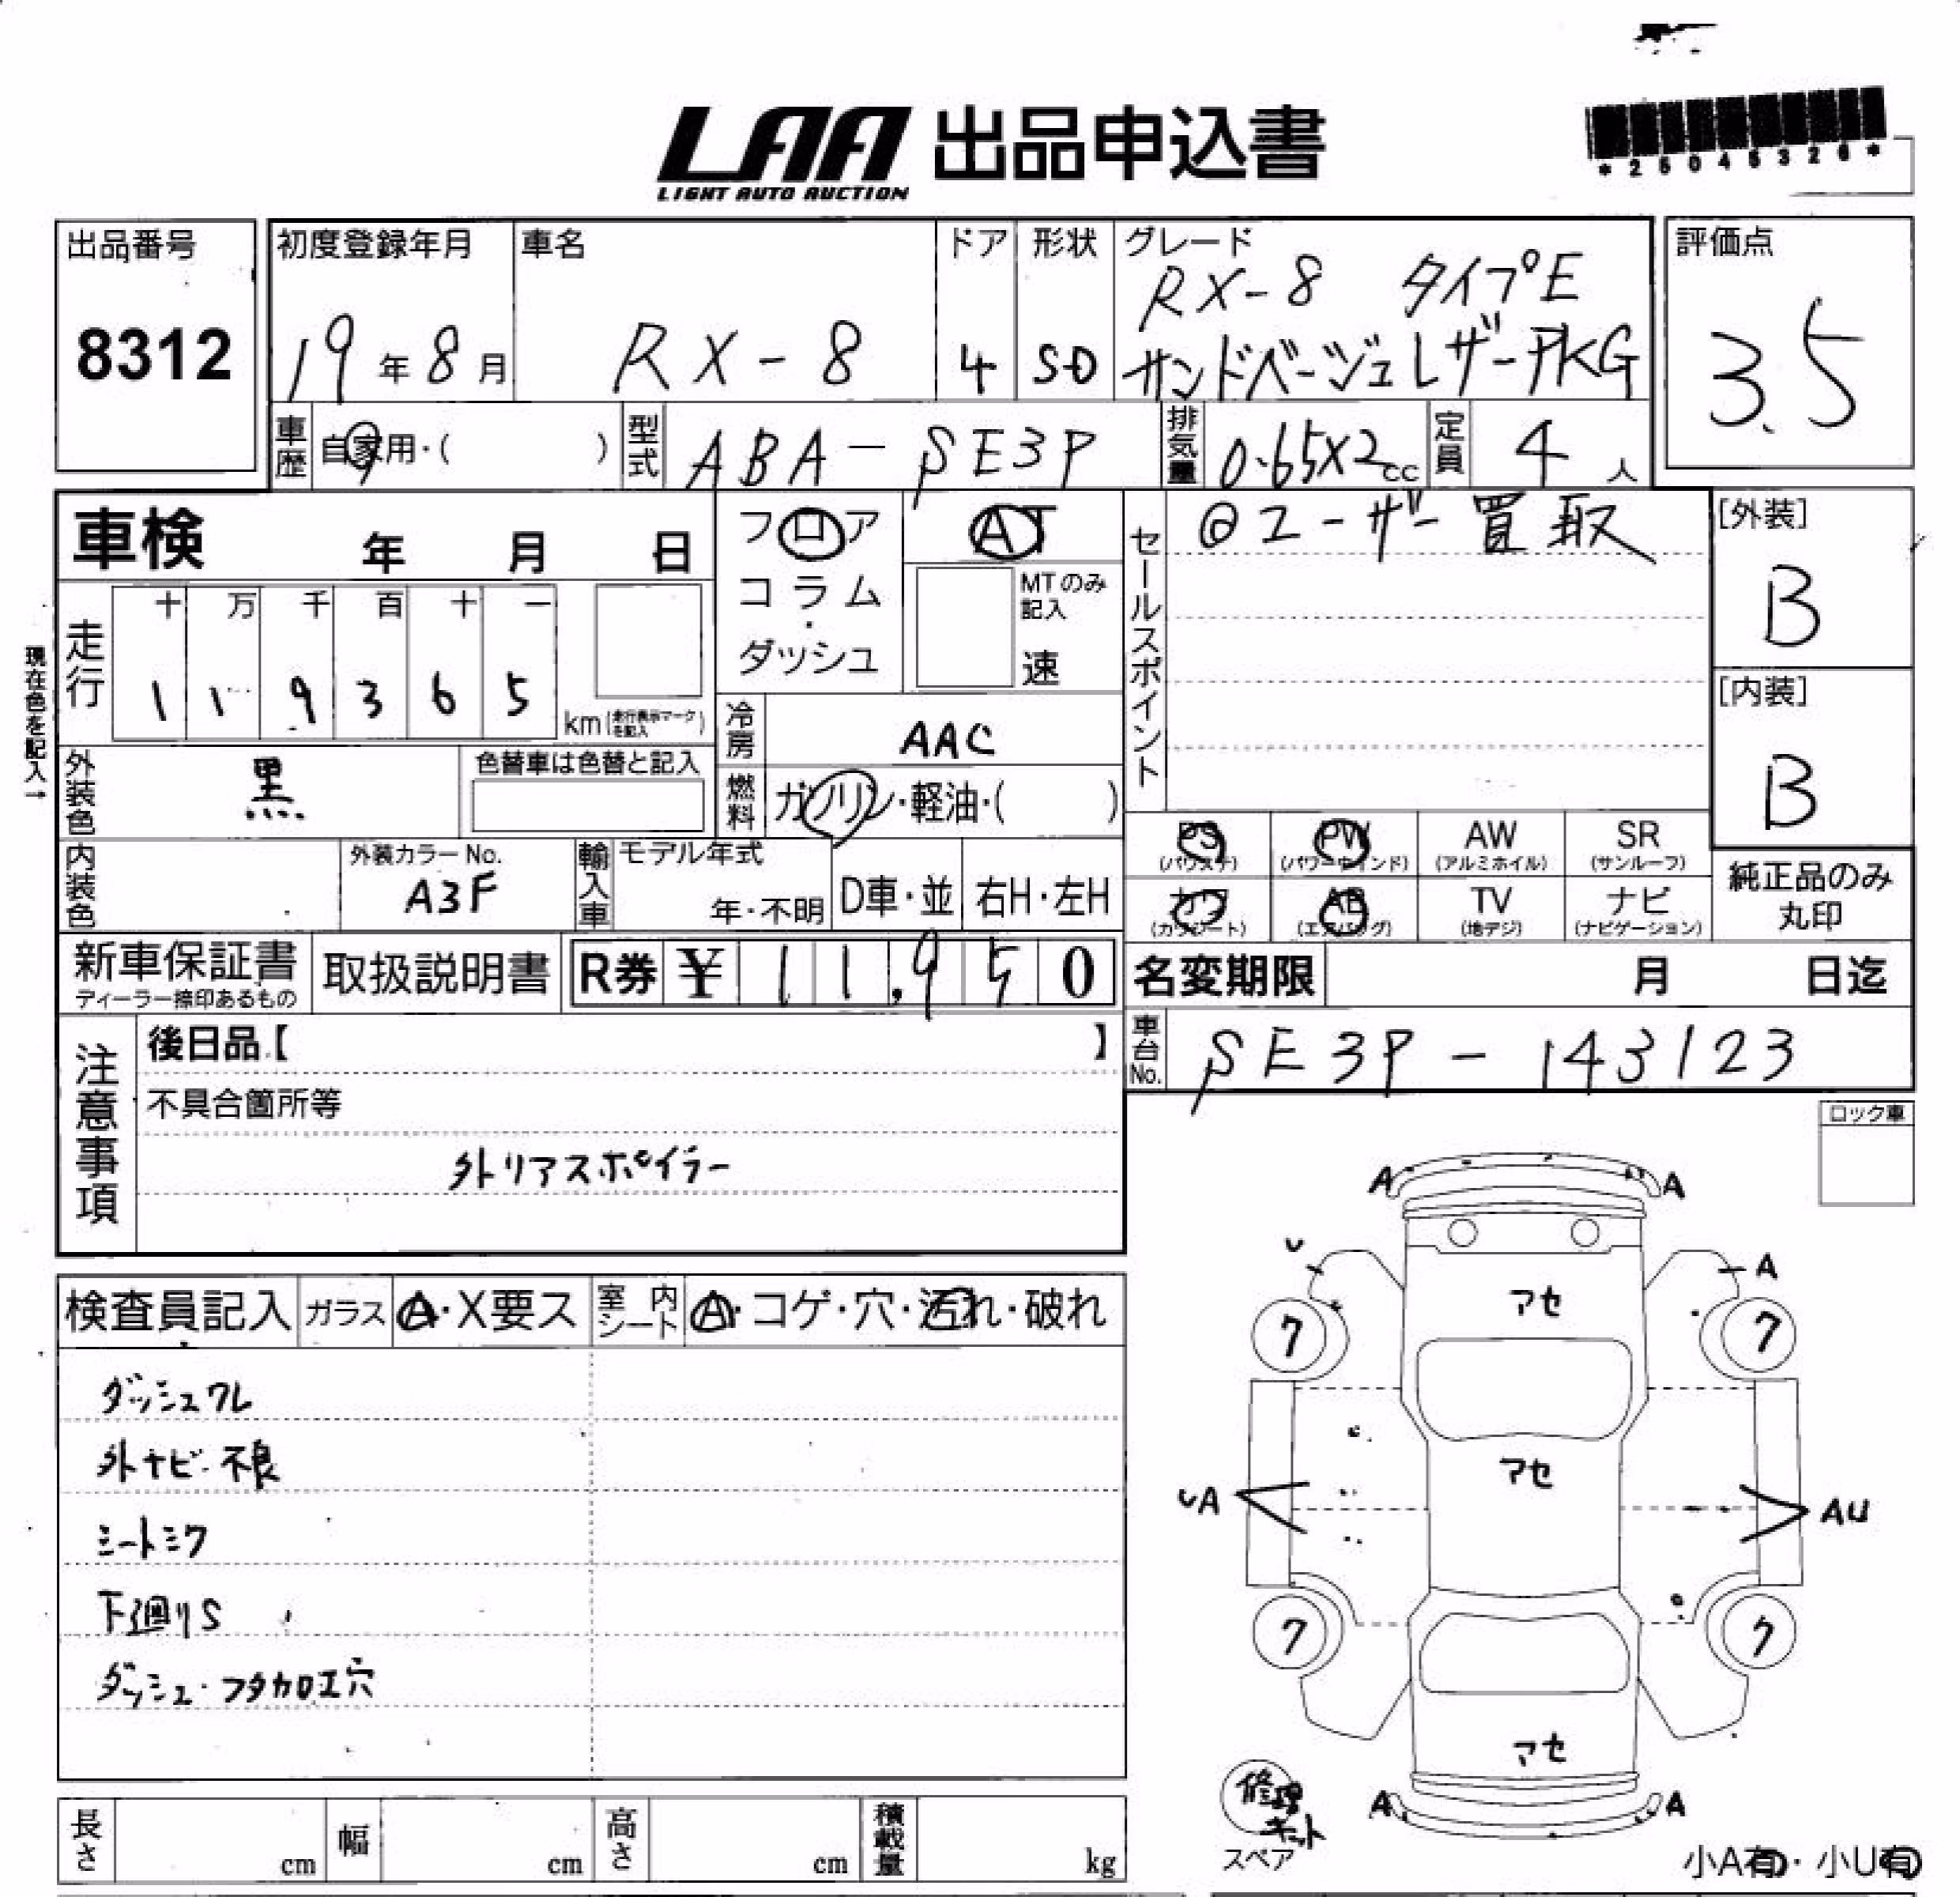 LAA 出品申込書
LIGHT AUTO AUCTION
出品番号
8312
初度登録年月
19年8月
車名
RX-8
ドア
4
形状
SD
グレード
RX-8 タイプE
サンドベージュレザーPKG
評価点
3.5
車歴 自家用・( )
型式 ABA-SE3P
排気量 0.65X2cc
定員 4人
車検 年 月 日
フロア
コラム
・
ダッシュ
AT
MTのみ
記入
速
セールスポイント
@ユーザー買取
[外装]
B
[内装]
B
現在色を記入→
走行
十 万 千 百 十 一
1 1 9 3 6 5
km(走行表示マークを記入)
冷房 AAC
外装色 黒
色替車は色替と記入
燃料 ガソリン・軽油・( )
内装色
外装カラーNo.
A3F
輸入車
モデル年式
年・不明
D車・並
右H・左H
PS
(パワステ)
PW
(パワーウインド)
AW
(アルミホイル)
SR
(サンルーフ)
カワ
(カワシート)
AB
(エアバッグ)
TV
(地デジ)
ナビ
(ナビゲーション)
純正品のみ
丸印
新車保証書
ディーラー捺印あるもの
取扱説明書
R券 ¥ 11,950
名変期限 月 日迄
車台No. SE3P-143123
注意事項
後日品【 】
不具合箇所等
外リアスポイラー
ロック車
検査員記入
ガラス A・X要ス
室内シート A・コゲ・穴・汚れ・破れ
ダッシュワレ
外ナビ不良
シートシワ
下廻りS
ダッシュ・フタカロエ穴
A
A
U
A
7
アセ
7
アセ
UA
AU
7
7
アセ
A
A
修理キット
スペア
小A有・小U有
長さ cm
幅 cm
高さ cm
積載量 kg